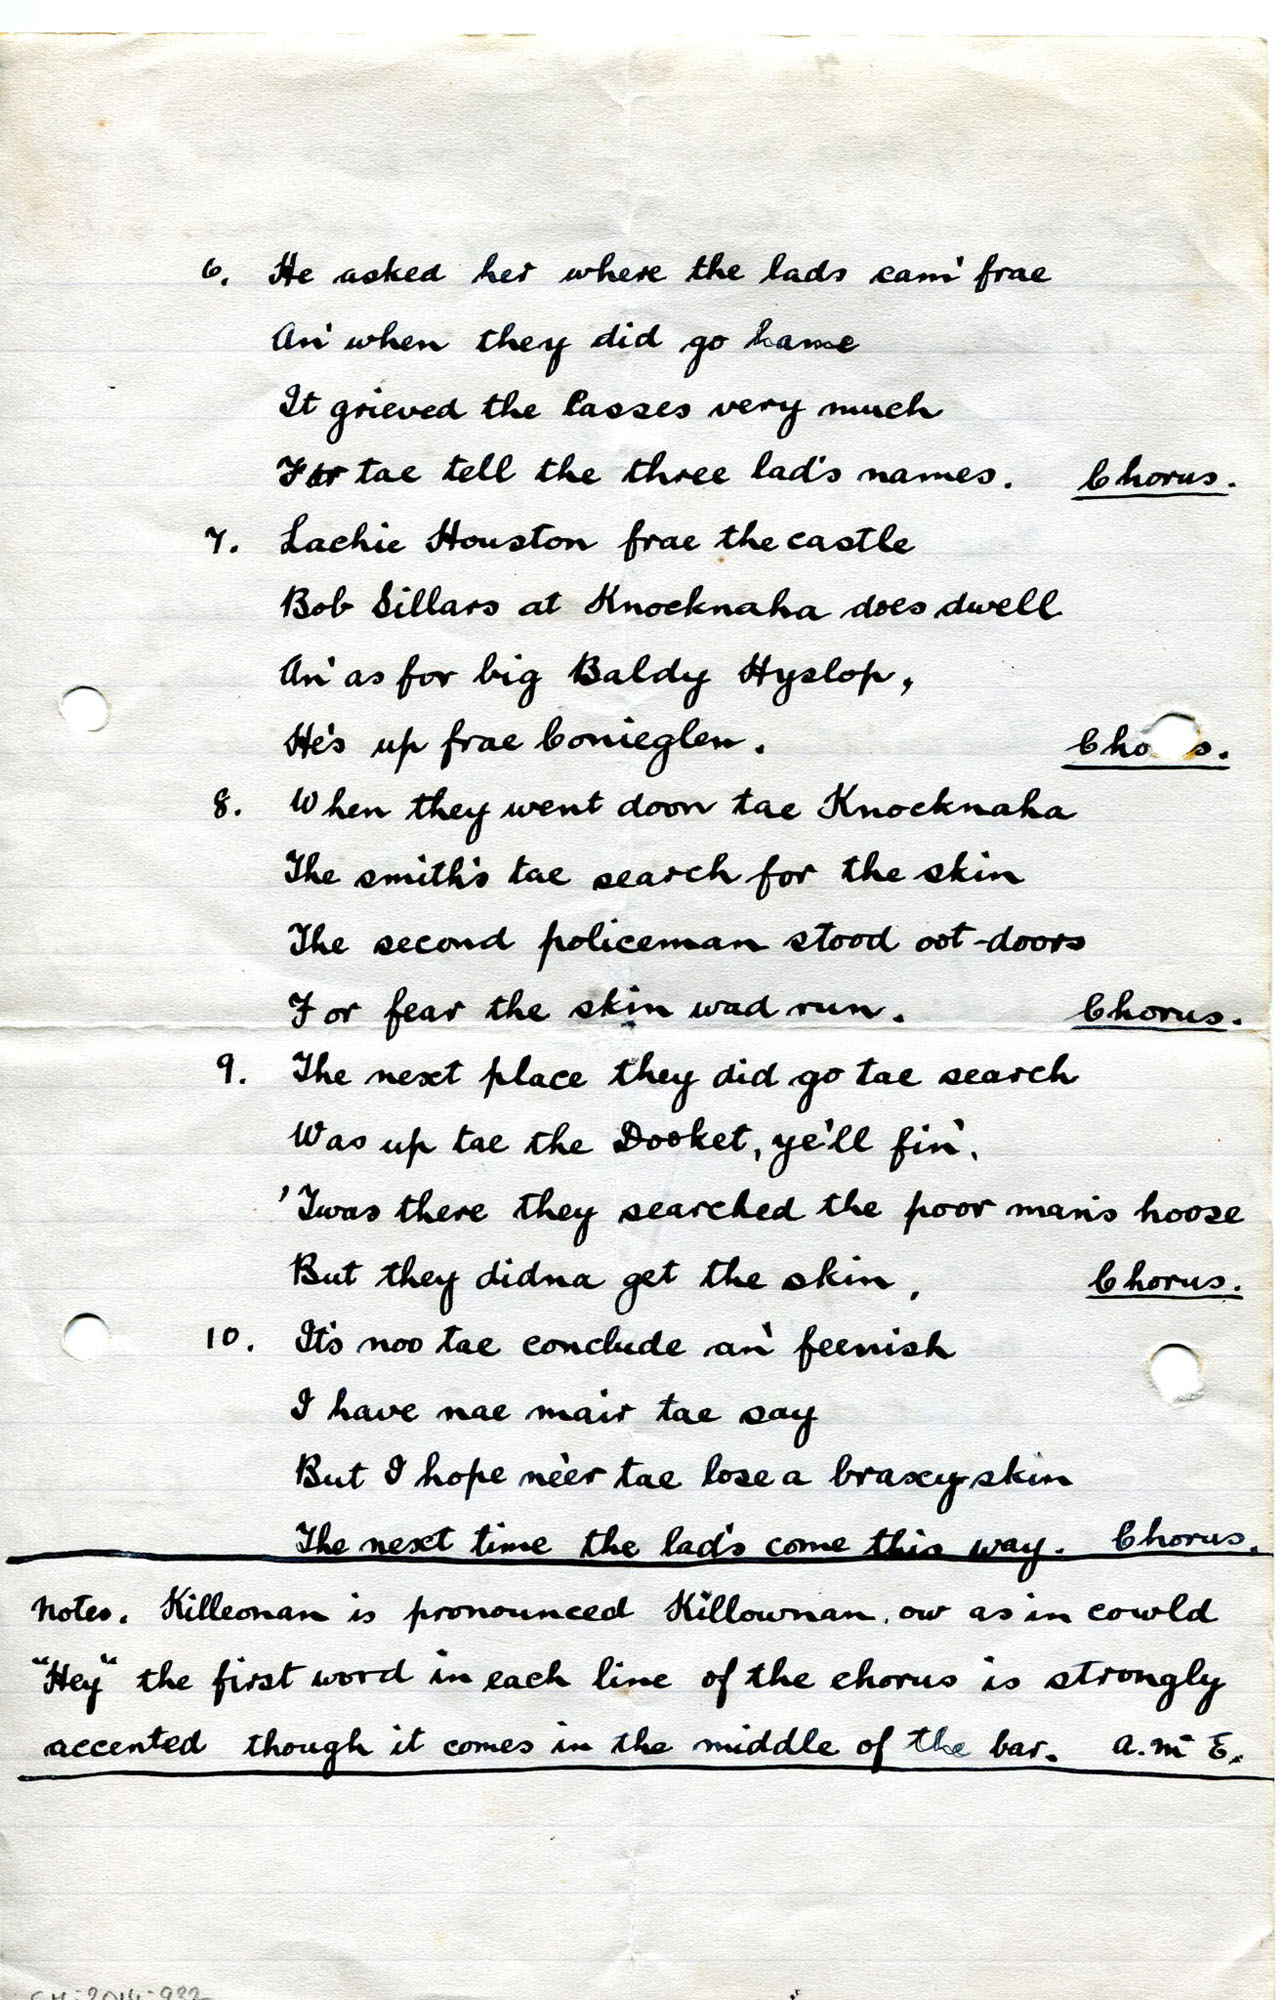 6. He asked her where the lads cam' frae
An' when they did go hame
It grieved the lasses very much
For tae tell the three lad's names. Chorus.
7. Lachie Houston frae the castle
Bob Sillars at Knocknaha does dwell
An' as for big Baldy Hyslop,
He's up frae Conieglen. Cho s.
8. When they went doon tae Knocknaha
The smith's tae search for the skin
The second policeman stood oot-doors
For fear the skin wad run. Chorus.
9. The next place they did go tae search
Was up tae the Dooket, ye'll fin'.
'Twas there they searched the poor man's hoose
But they didna get the skin. Chorus.
10. It's noo tae conclude an' feenish
I have nae mair tae say
But I hope ne'er tae lose a braxy skin
The next time the lad's come this way. Chorus.
Notes. Killeonan is pronounced Killownan, ow as in cowld
"Hey" the first word in each line of the chorus is strongly
accented though it comes in the middle of the bar. A. Mc E.